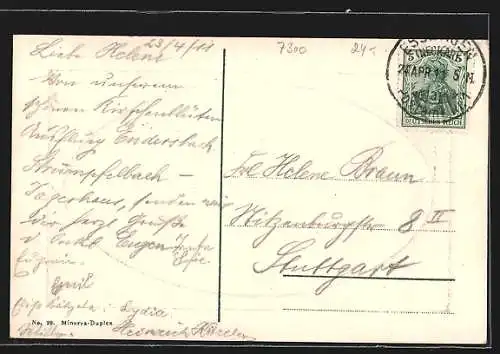 23/4/11
Liebe Helene
Von unserem
schönen Kirschenblüten
Ausflug Endersbach
Strümpfelbach –
Jägerhaus, senden wir
dir herzl. Grüße
Onkel Eugen
Emil
Lydia
Heinrich
No. 29. Minerva-Duplex
7300
24.-
ESSLINGEN
(NECKAR)
24 APR 11 5
DEUTSCHES REICH
Frl Helene Braun
Witzenburgstr 8 II
Stuttgart